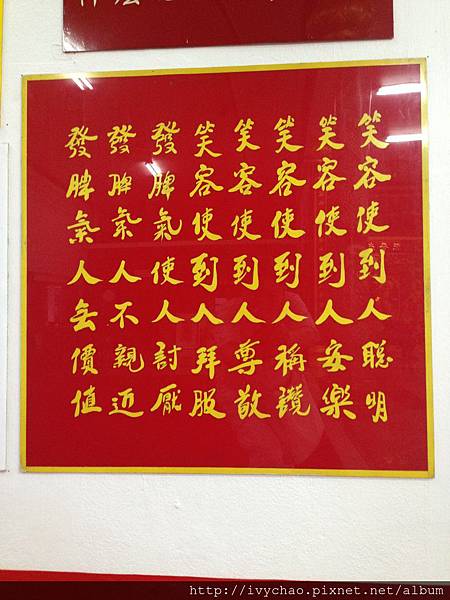 笑容使到人聰明
笑容使到人安樂
笑容使到人稱讚
笑容使到人尊敬
笑容使到人拜服
發脾氣使人討厭
發脾氣人不親近
發脾氣人無價值
http://ivychao.pixnet.net/album